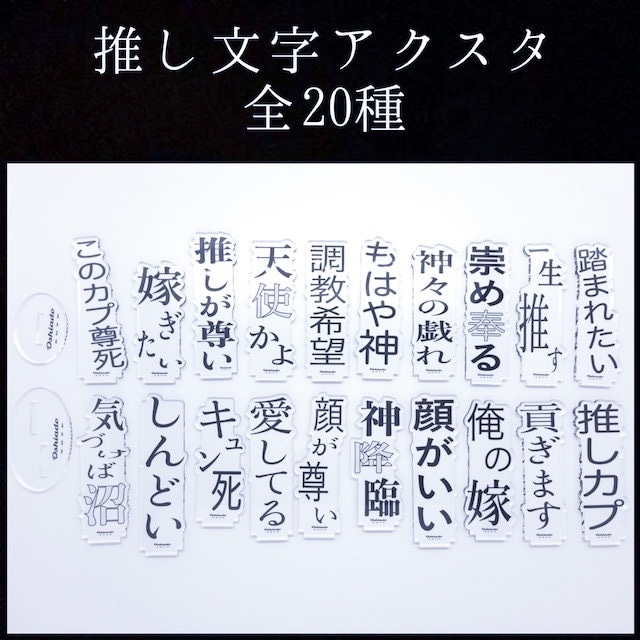 推し文字アクスタ
全20種
このカプ尊死
嫁ぎたい
推しが尊い
天使かよ
調教希望
もはや神
神々の戯れ
崇め奉る
一生推す
踏まれたい
Oshiado
気づけば沼
しんどい
キュン死
愛してる
顔が尊い
神降臨
顔がいい
俺の嫁
貢ぎます
推しカプ
Oshiado